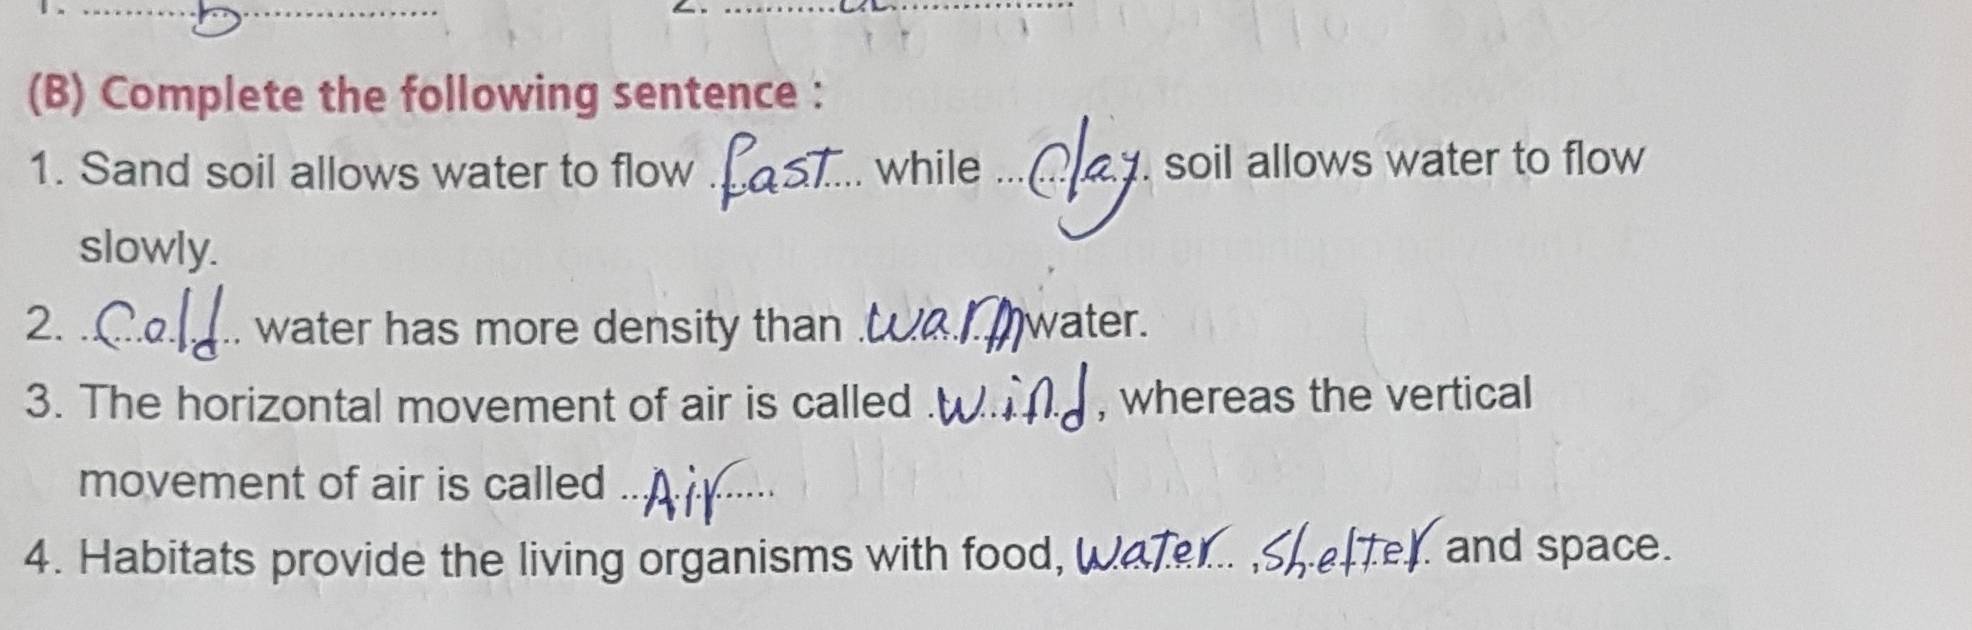 1. ........b................ 2. .........a................
(B) Complete the following sentence :
1. Sand soil allows water to flow fast while Clay soil allows water to flow
slowly.
2. Cold water has more density than warm water.
3. The horizontal movement of air is called wind, whereas the vertical
movement of air is called Air
4. Habitats provide the living organisms with food, water, shelter and space.